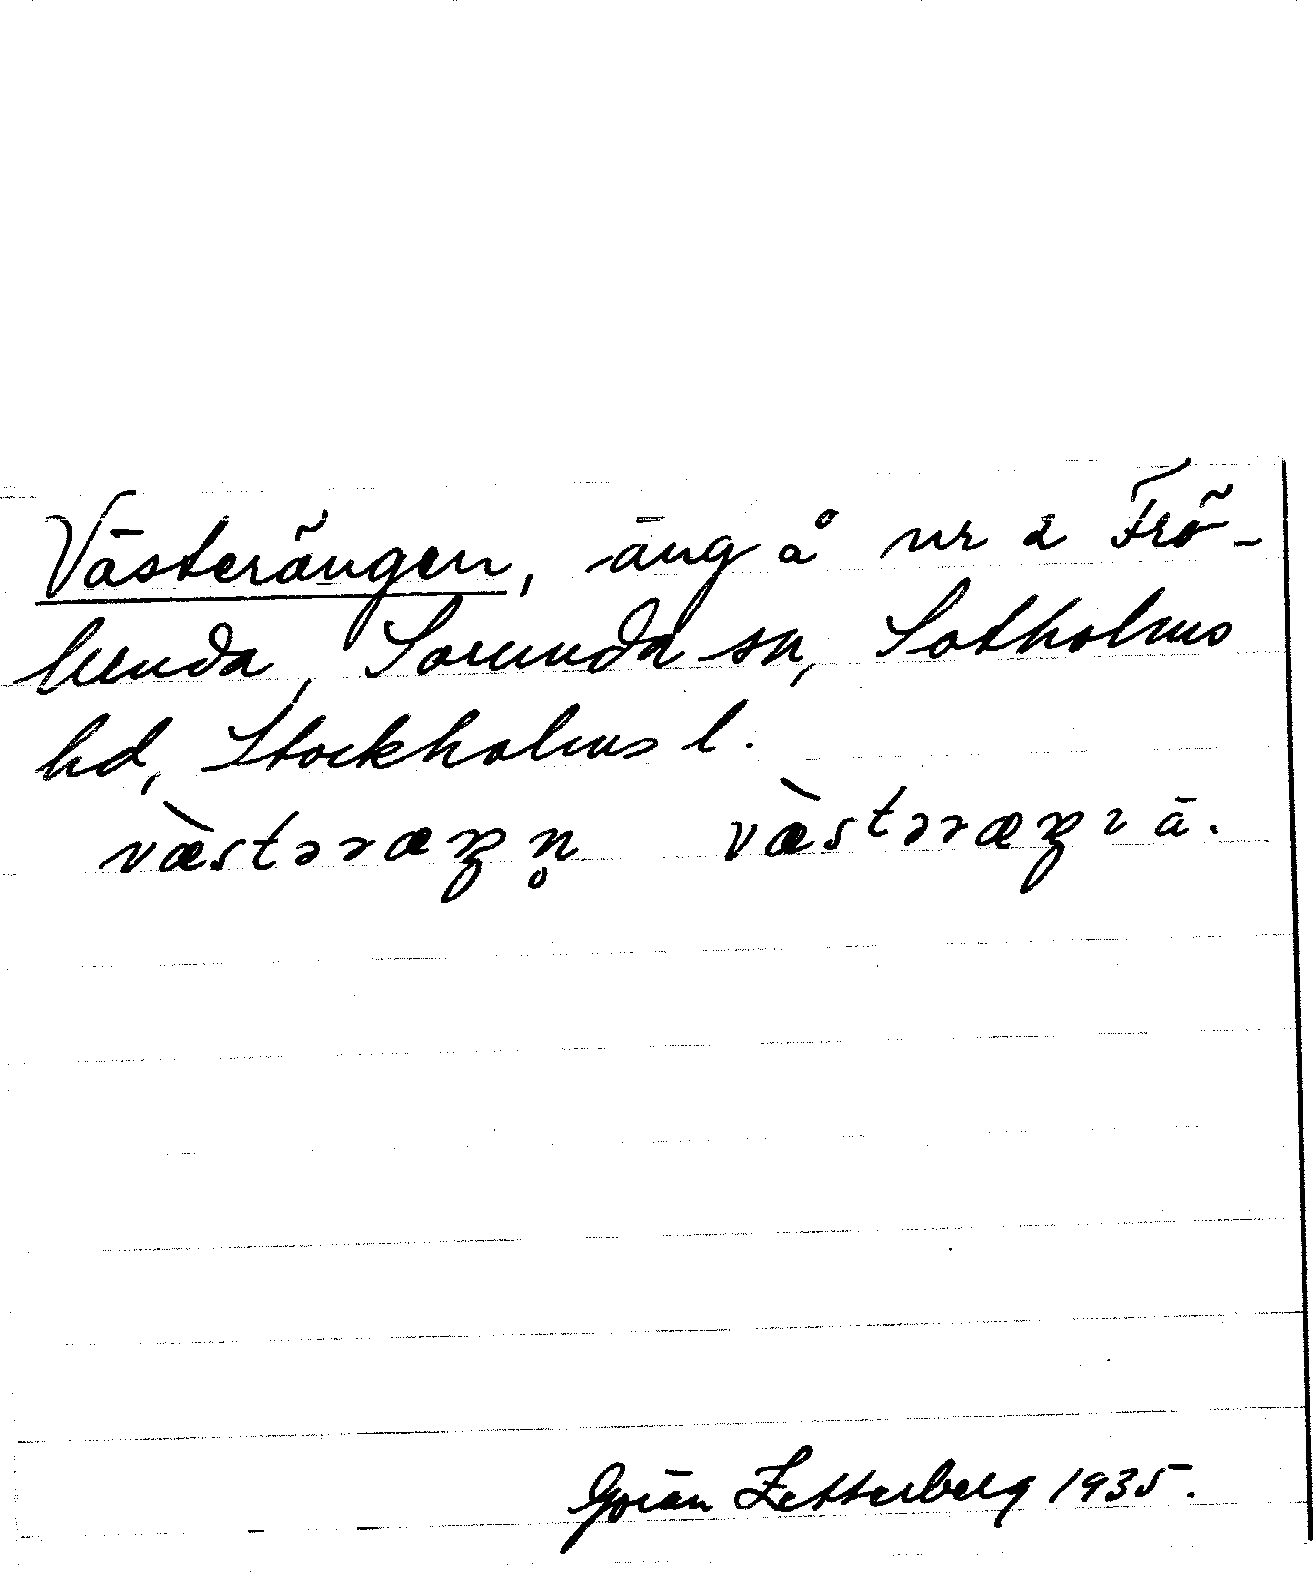 Västerängen, äng å nr 2 Frö-
lunda, Sorunda sn, Sotholms
hd, Stockholms l.
væ̀stəræŋn̥ væ̀stəræŋɩ ā.
Göran Zetterberg 1935.